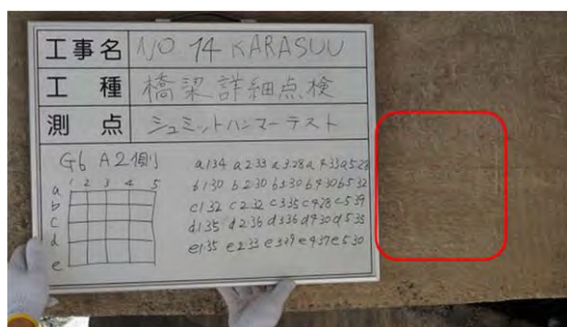 工事名 NO 14 KARASUU
工種 橋梁詳細点検
測点 シュミットハンマーテスト
G6 A2側
1 2 3 4 5
a
b
c
d
e
a1.34 a2.33 a3.28 a4.33 a5.28
b1.30 b2.30 b3.30 b4.30 b5.32
c1.32 c2.32 c3.35 c4.28 c5.39
d1.35 d2.36 d3.36 d4.30 d5.35
e1.35 e2.33 e3.29 e4.37 e5.30